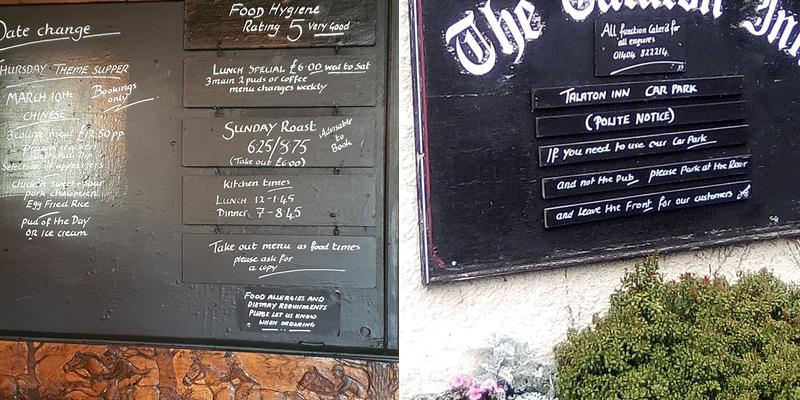 Date change
THURSDAY THEME SUPPER
MARCH 10th
Bookings
only
CHINESE
3 course meal £12.50pp
Prawn crackers
Dip
Selection of appetisers
Chicken Sweet + Sour
pork chowmein
Egg Fried Rice
pud of the Day
OR ice cream
FOOD HYGIENE
Rating 5 Very Good
LUNCH SPECIAL £6.00 wed to Sat
3 main 2 puds or coffee
menu changes weekly
SUNDAY ROAST
Advisable
to
Book
6.25/8.75
(Take out £6.00)
Kitchen times
LUNCH 12-1.45
Dinner 7-8.45
Take out menu as food times
please ask for
a copy
FOOD ALLERGIES AND
DIETARY REQUIRMENTS
PLEASE LET US KNOW
WHEN ORDERING
The Talaton Inn
All function Cater'd for
all enquires
01404 822214
TALATON INN CAR PARK
(POLITE NOTICE)
IF you need to use our Car Park
and not the Pub please Park at the Rear
and leave the Front for our customers